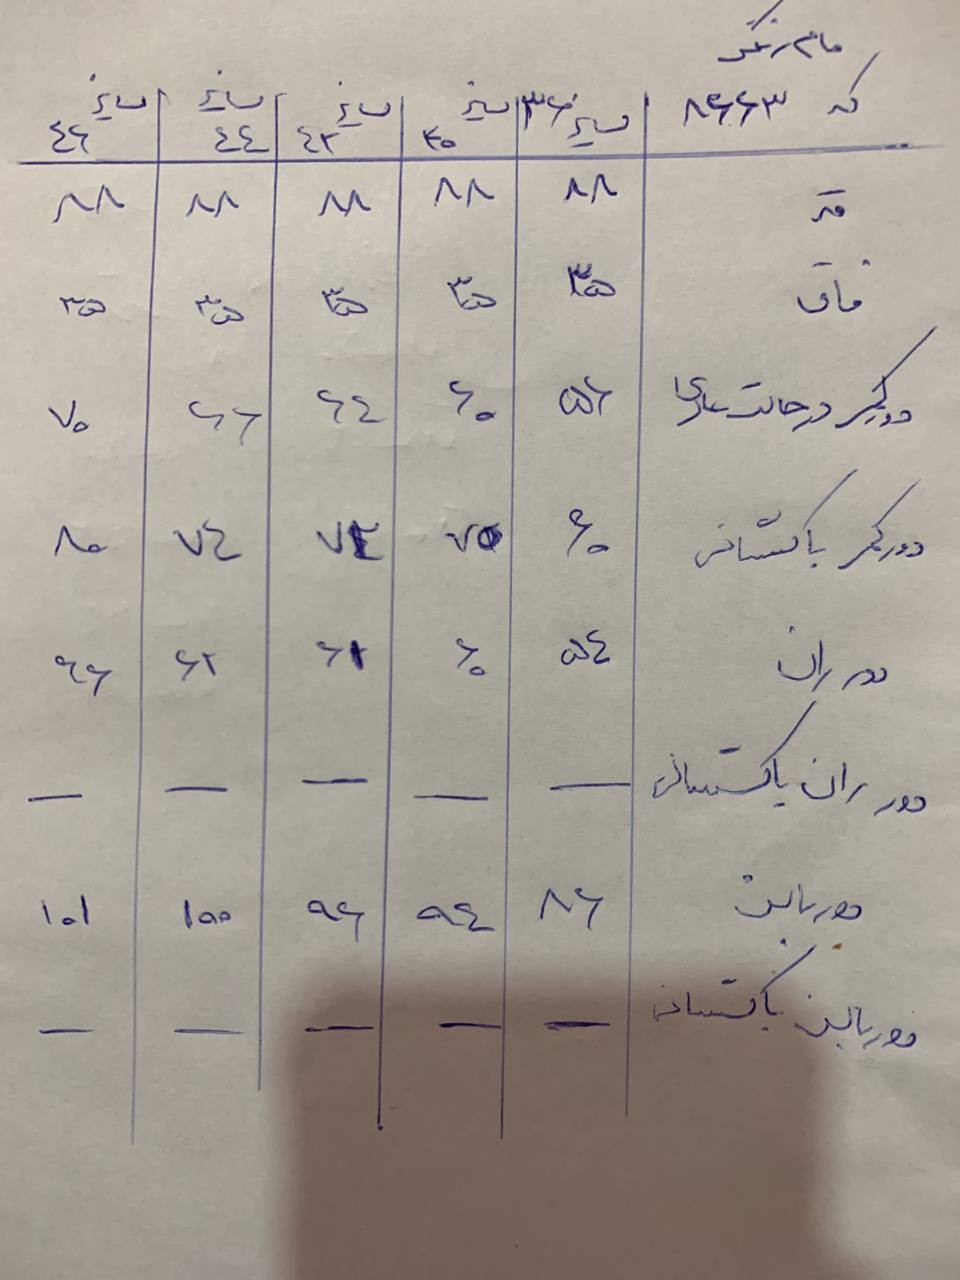 مام رنگی
کد ۸۶۶۶۳ سایز ۳۶ سایز ۴۰ سایز ۴۲ سایز ۴۴ سایز ۴۶
قد ۸۸ ۸۸ ۸۸ ۸۸ ۸۸
فاق ۳۵ ۳۵ ۳۵ ۳۵ ۳۵
دور کمر در حالت عادی ۵۶ ۶۰ ۶۴ ۶۶ ۷۰
دور کمر باکشسانی ۶۰ ۷۰ ۷۲ ۷۴ ۸۰
دور ران ۵۴ ۶۰ ۶۲ ۶۲ ۶۶
دور ران باکشسانی — — — — —
دور باسن ۸۶ ۹۴ ۹۶ ۱۰۰ ۱۰۱
دور باسن باکشسانی — — — — —